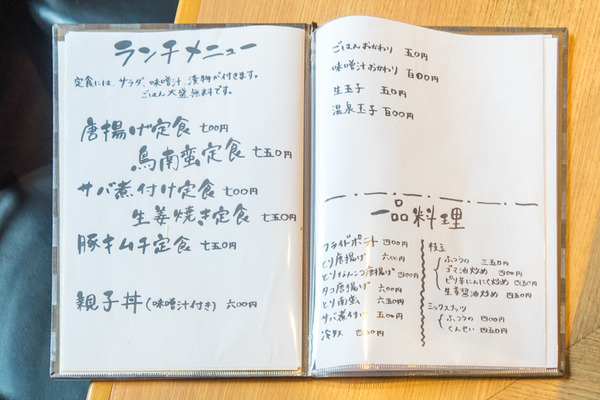 ランチメニュー
定食には、サラダ、味噌汁、漬物が付きます。
ごはん大盛無料です。
唐揚げ定食 七00円
鳥南蛮定食 七五0円
サバ煮付け定食 七00円
生姜焼き定食 七五0円
豚キムチ定食 七五0円
親子丼(味噌汁付き) 六00円
ごはんおかわり 五0円
味噌汁おかわり 百00円
生玉子 五0円
温泉玉子 百00円
一品料理
フライドポテト 四00円
とり唐揚げ 六00円
とりなんこつ唐揚げ 四00円
タコ唐揚げ 六00円
とり南蛮 六五0円
サバ煮付け 五00円
冷奴
枝豆
ふつうの 三五0円
ゴマ油炒め 四00円
ピリ辛にんにく炒め 四五0円
生姜醤油炒め 四五0円
ミックスナッツ
ふつうの 四00円
くんせい 四五0円